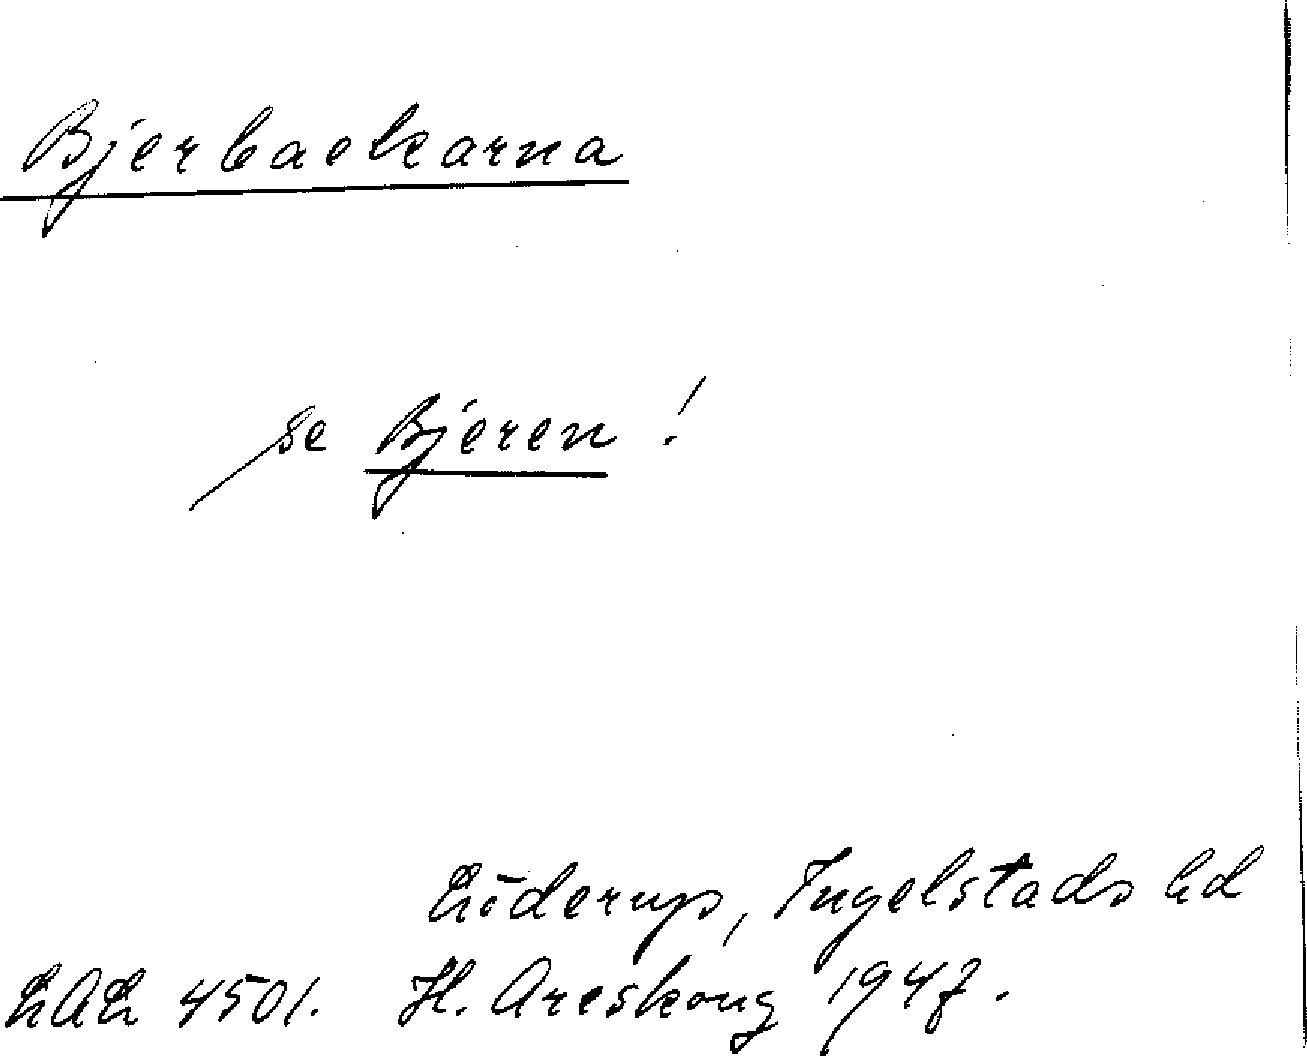 Bjerbackarna
se Bjeren!
Löderup, Ingelstads hd
LAL 4501. H. Areskoug 1947.